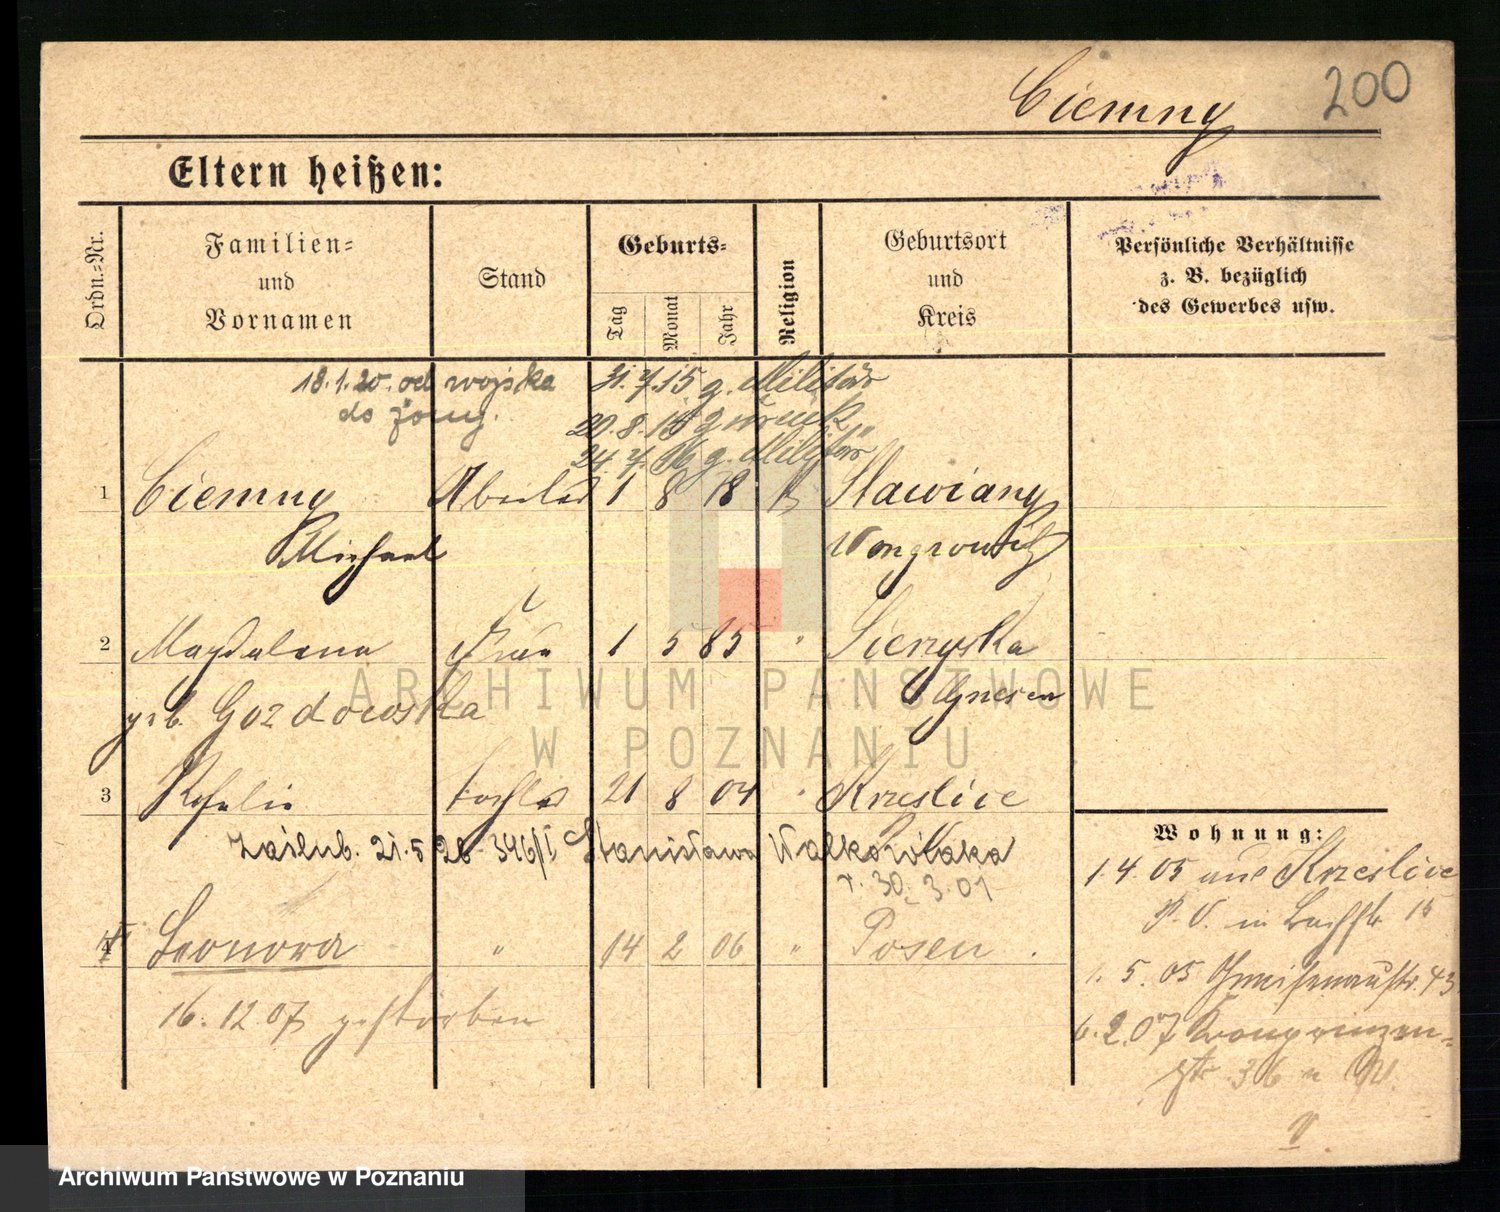 Ciemny
200
Eltern heißen:
Ordn.-Nr.
Familien-
und
Vornamen
Stand
Geburts-
Tag
Monat
Jahr
Religion
Geburtsort
und
Kreis
Persönliche Verhältnisse
z. B. bezüglich
des Gewerbes usw.
18.1.20. od wojska
do żony.
31.7.15 g. Militär
20.8.15 zurück
24.7.16 g. Militär
1 Ciemny 1 8 78 k Slawiany
Michael Wongrowitz
2 Magdalena Frau 1 5 85 "
geb. Gozdowska Gnesen
3 Rosalie Tochter 21 8 04 " Krzeslice
Zaślub. 21.5.28 346/I Stanisława Walkowiaka
*. 30.3.01
4 Leonora " 14 2 06 " Posen.
16.12.07 gestorben
Wohnung:
1.4.05 aus Krzeslice
P.O. in Bachstr. 15
1.5.05 Gneisenaustr. 43
6.2.07 Kronprinzen-
str. 36
ARCHIWUM PAŃSTWOWE
W POZNANIU
Archiwum Państwowe w Poznaniu